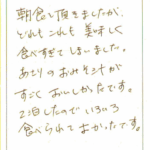 朝食を頂きましたが、
どれもこれも美味しく
食べすぎてしまいました。
あさりのおみそ汁が
すごくおいしかったです。
2泊したのでいろいろ
食べられてよかったです。